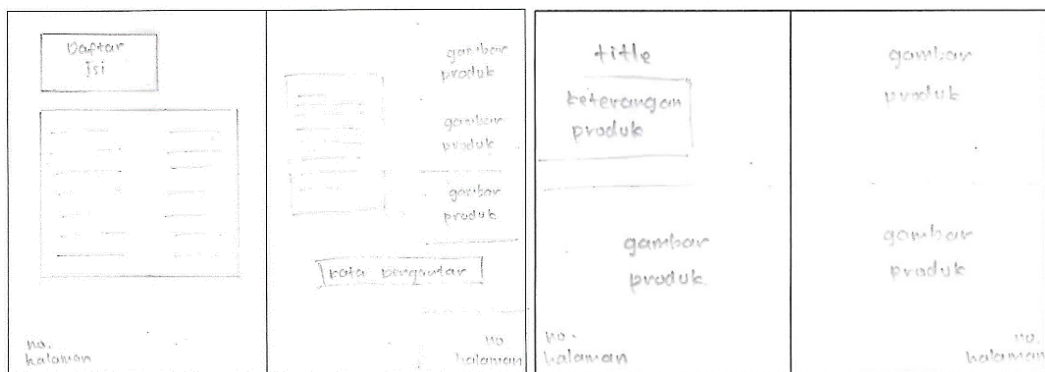 Daftar
Isi
no.
halaman
gambar
produk
gambar
produk
gambar
produk
kata pengantar
no
halaman
title
keterangan
produk
gambar
produk
no.
halaman
gambar
produk
gambar
produk
no.
halaman